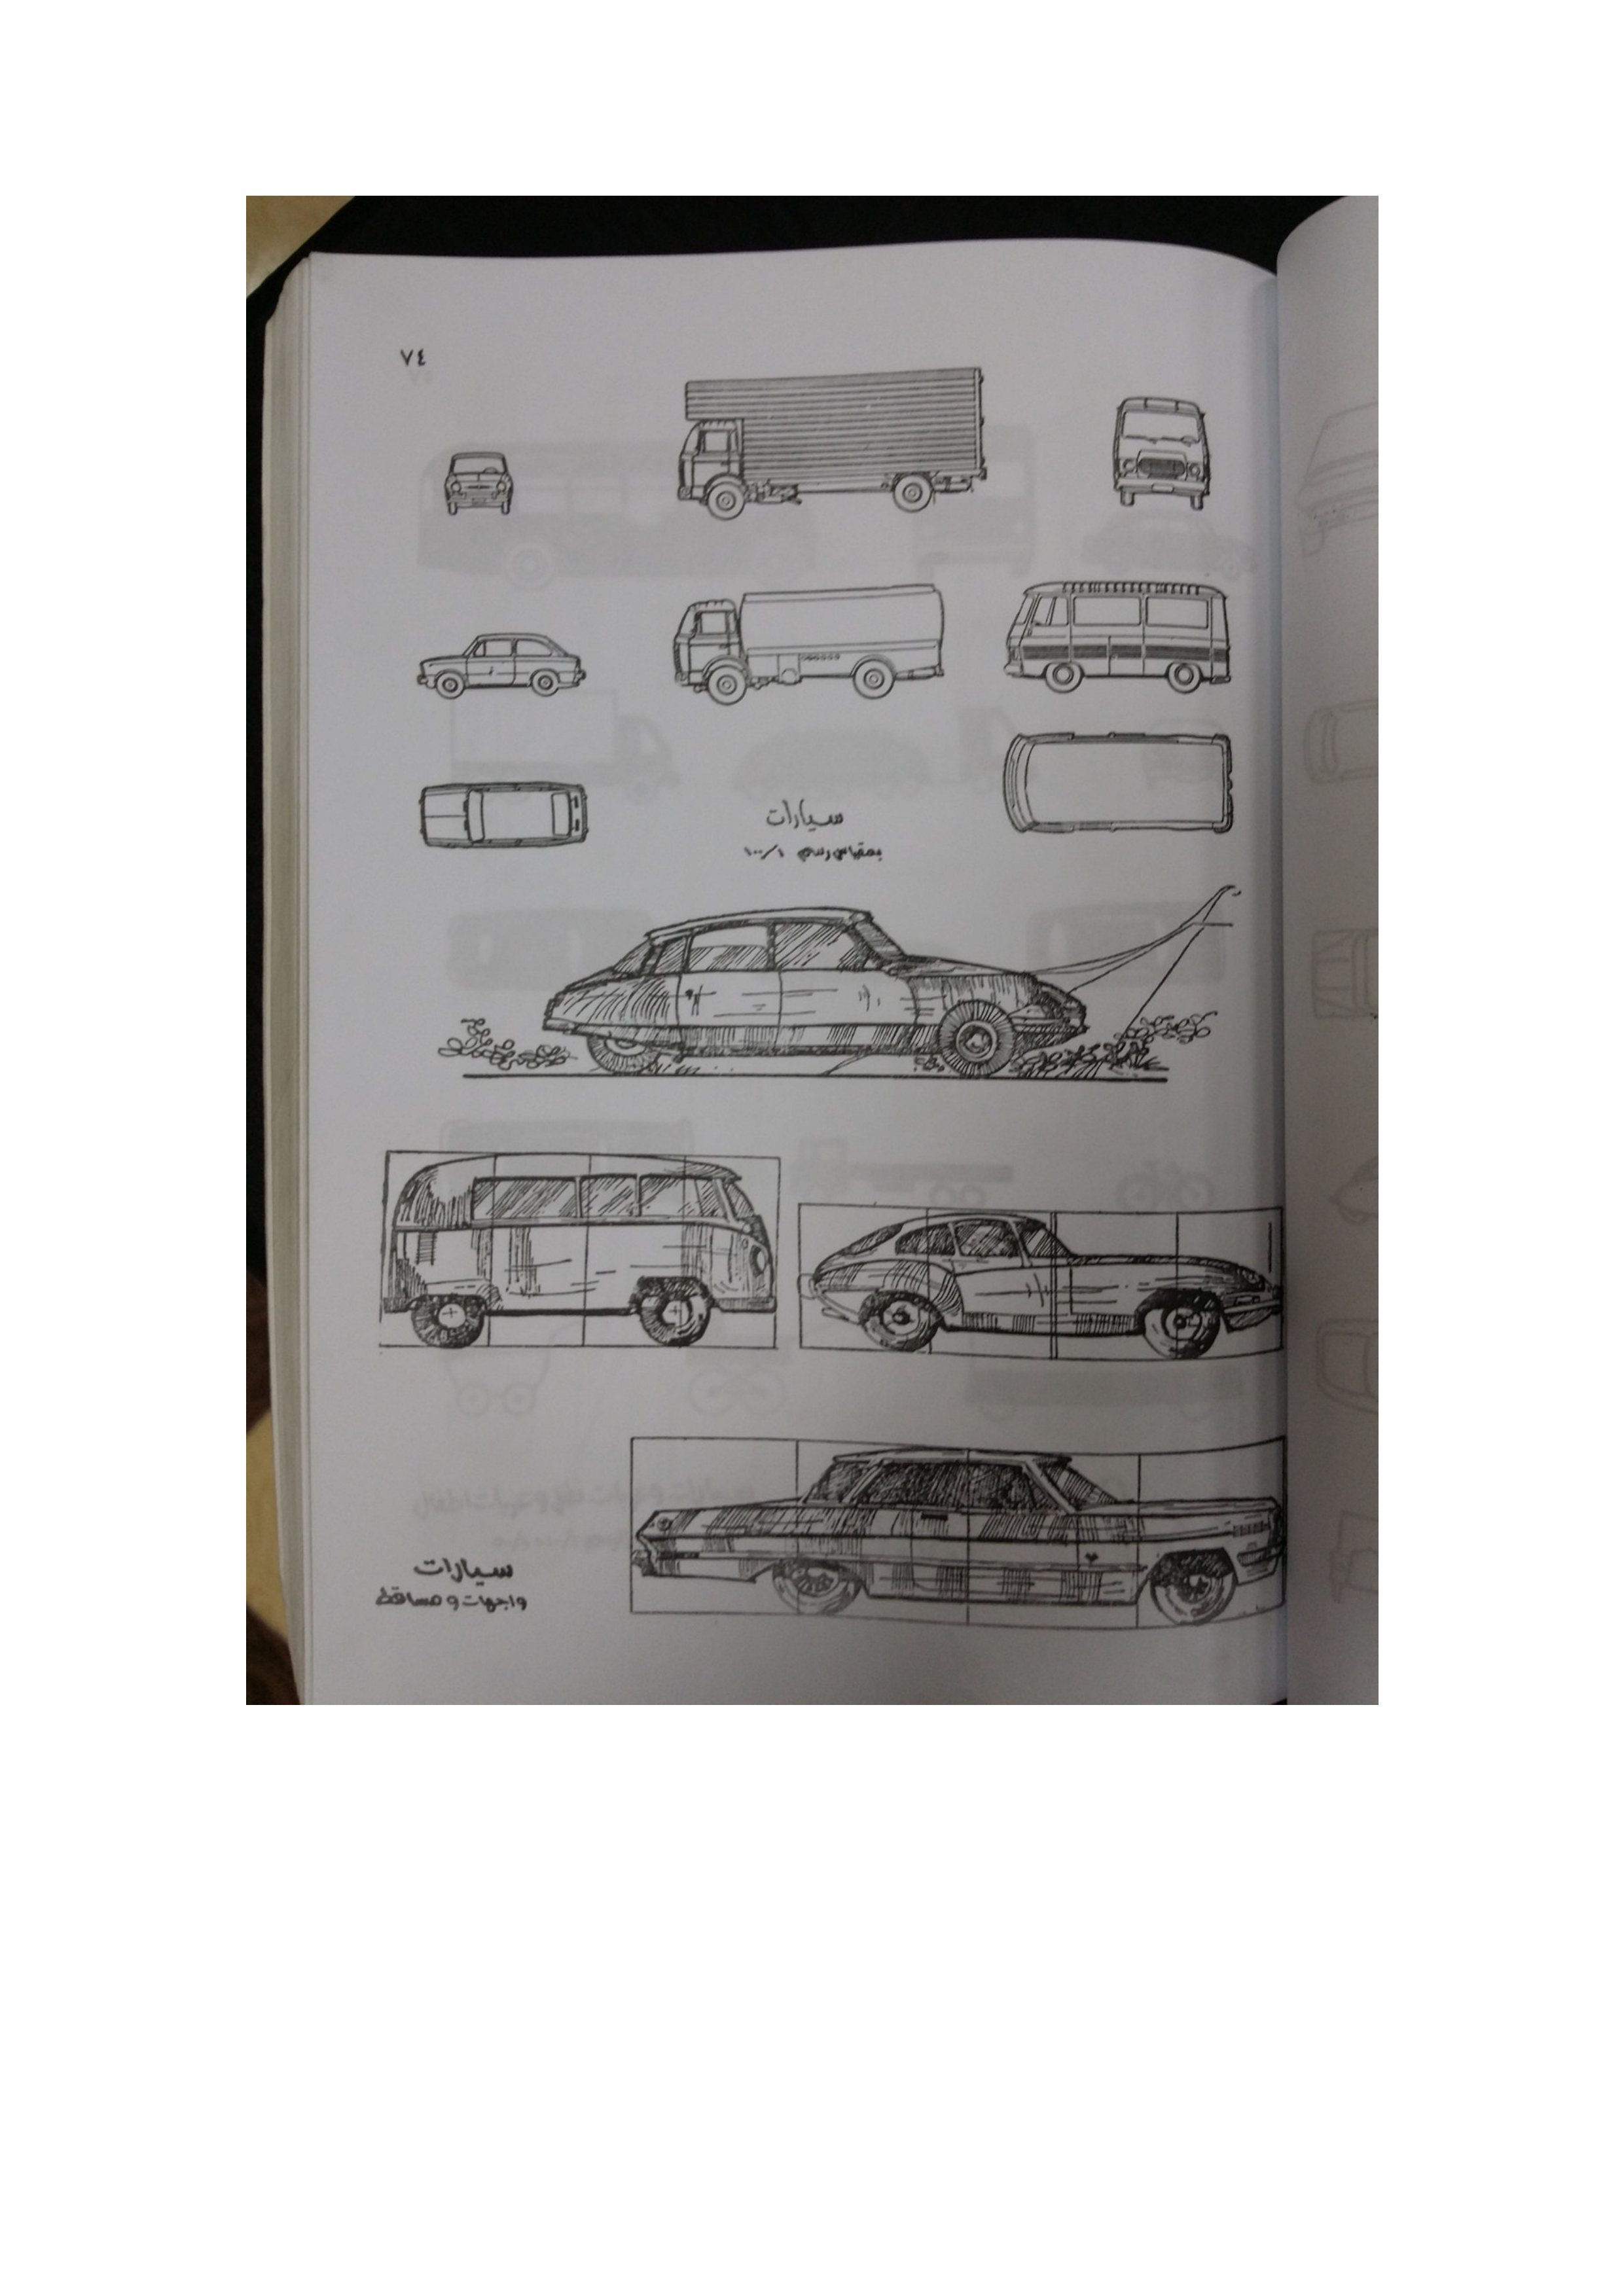 ٧٤
سيارات
بمقياس رسم ١/١٠٠
سيارات
واجهات و مساقط